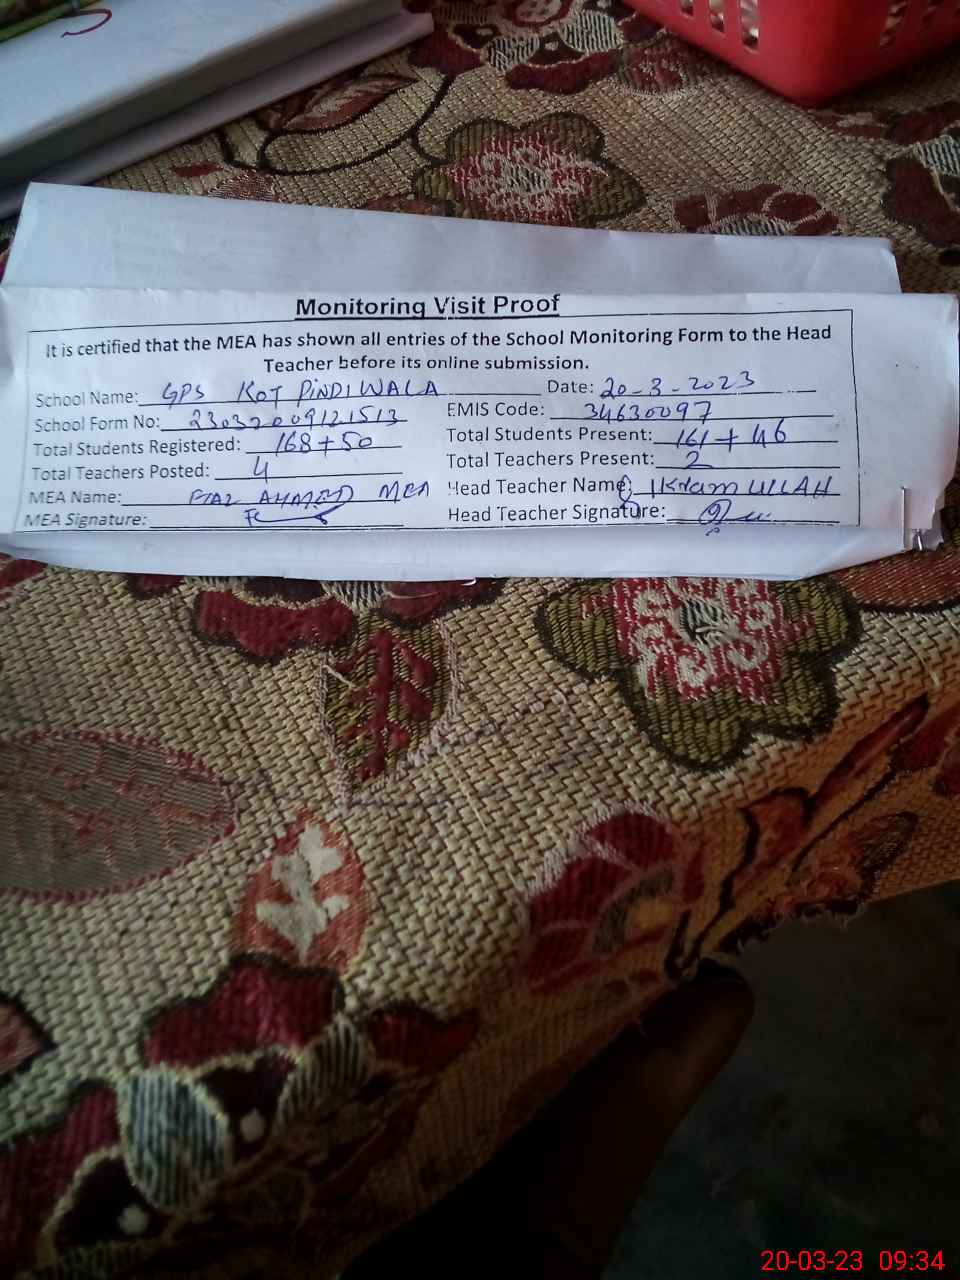 Monitoring Visit Proof
It is certified that the MEA has shown all entries of the School Monitoring Form to the Head
Teacher before its online submission.
School Name: GPS KOT PINDIWALA Date: 20-3-2023
School Form No: 23032009121513 EMIS Code: 34630097
Total Students Registered: 168+50 Total Students Present: 161+46
Total Teachers Posted: 4 Total Teachers Present: 2
MEA Name: AHMED MEA Head Teacher Name: IKram ULLAH
MEA Signature: Head Teacher Signature:
20-03-23 09:34